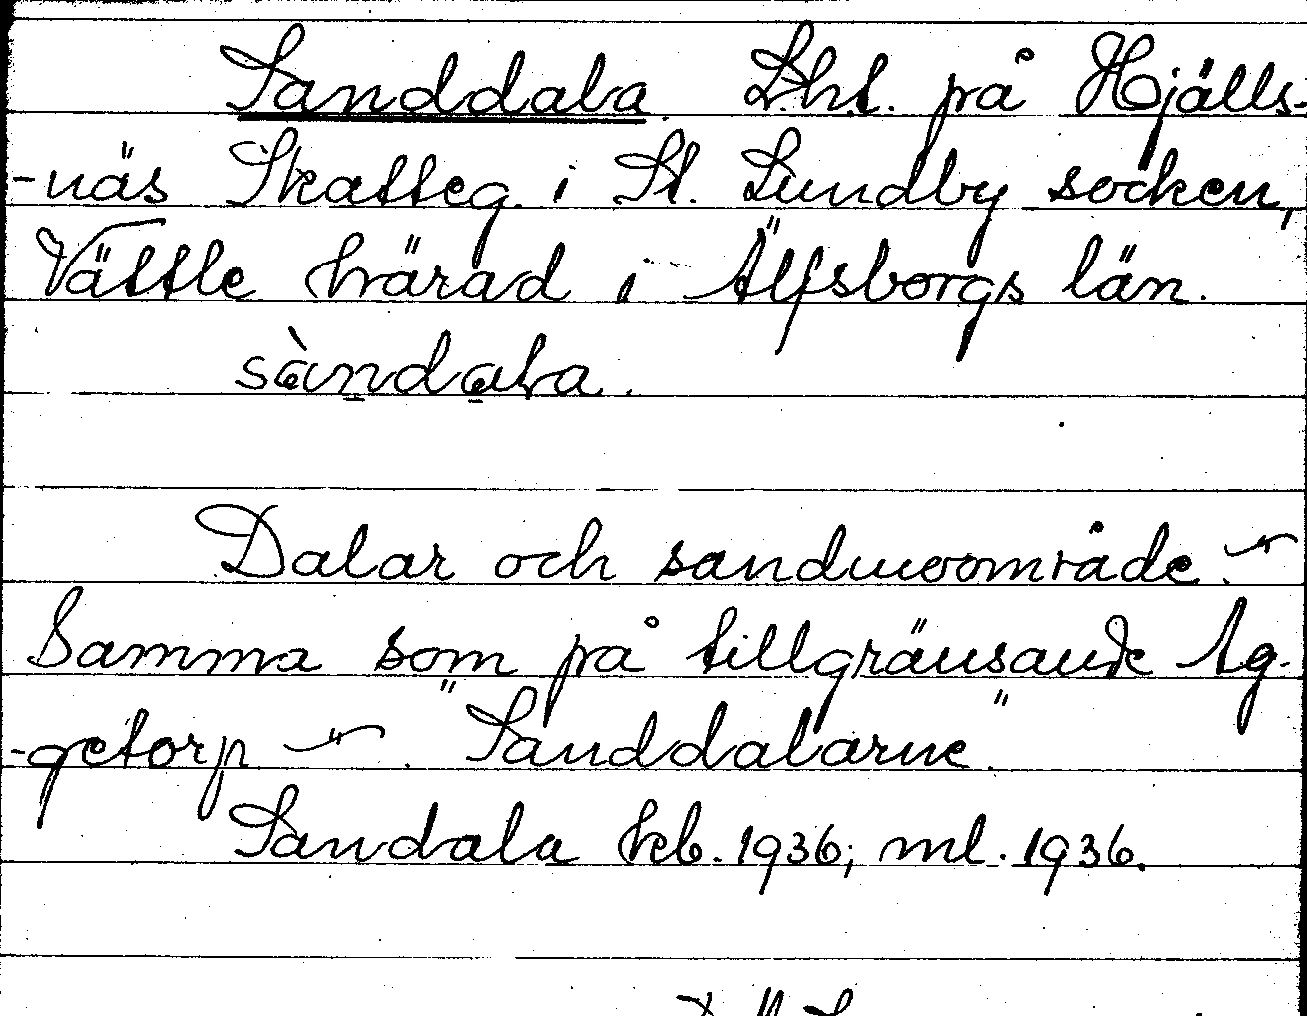 Sanddala Lht. på Hjälls-
-näs Skatteg. i St. Lundby socken,
Vättle härad i Älfsborgs län.
sàndaḷa.
Dalar och sandmoområde.
Samma som på tillgränsande Ag-
-getorp. "Sanddalarne."
Sandala kb. 1936; ml. 1936.